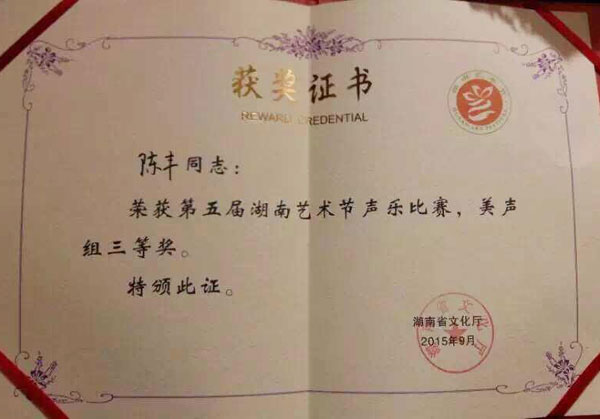 获奖证书
REWARD CREDENTIAL
陈丰同志：
荣获第五届湖南艺术节声乐比赛，美声
组三等奖。
特颁此证。
湖南省文化厅
2015年9月